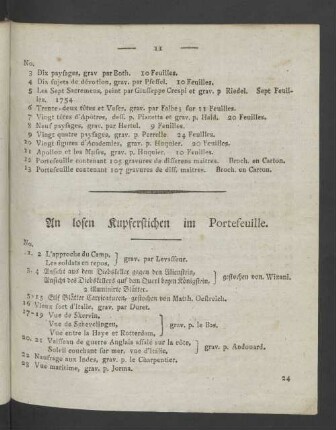 — 11 —
No.
3 Dix paysages, grav par Both. 10 Feuilles.
4 Dix sujets de dévotion, grav. par Pfeffel. 10 Feuilles.
5 Les Sept Sacremens, peint par Giuseppe Crespi et grav. p Riedel. Sept Feuil-
les. 1754
6 Trente-deux têtes et Vases, grav. par Falbe; sur 12 Feuilles.
7 Vingt têtes d'Apôtres, dess. p. Piazetta et grav. p. Haid. 20 Feuilles.
8 Neuf paysages, grav. par Hertel. 9 Feuilles.
9 Vingt quatre paysages, grav. p. Perrelle 24 Feuilles.
10 Vingt figures Academiées, grav. p. Huquier. 20 Feuilles.
11 Apollon et les Muses, grav. p. Huquier. 10 Feuilles.
12 Portefeuille contenant 105 gravures de differens maitres. Broch. en Carton.
13 Portefeuille contenant 107 gravures de diff. maitres. Broch. en Carton.
An losen Kupferstichen im Portefeuille.
No.
1. 2 L'approche du Camp.
Les soldats en repos. } grav. par Levasseur.
3. 4 Ansicht aus dem Liebethaler Grunde gegen den Lilienstein,
Ansicht des Diebskellers auf dem Querl beym Königstein. } gestochen von Wizani.
2 illuminirte Blätter.
5-15 Eilf Blätter Carricaturen, gestochen von Matth. Oesterreich.
16 Vieux fort d'Italie, grav. par Duret.
17-19 Vue de Skervin,
Vue de Schevelingen,
Vue entre la Haye et Rotterdam, } grav. p. le Bas.
20. 21 Vaisseau de guerre Anglais assailé sur la côte,
Soleil couchant sur mer. vue d'Italie. } grav. p. Andouard.
22 Naufrage aux Indes, grav. p. le Charpentier.
23 Vue maritime, grav. p. Jorma.
24